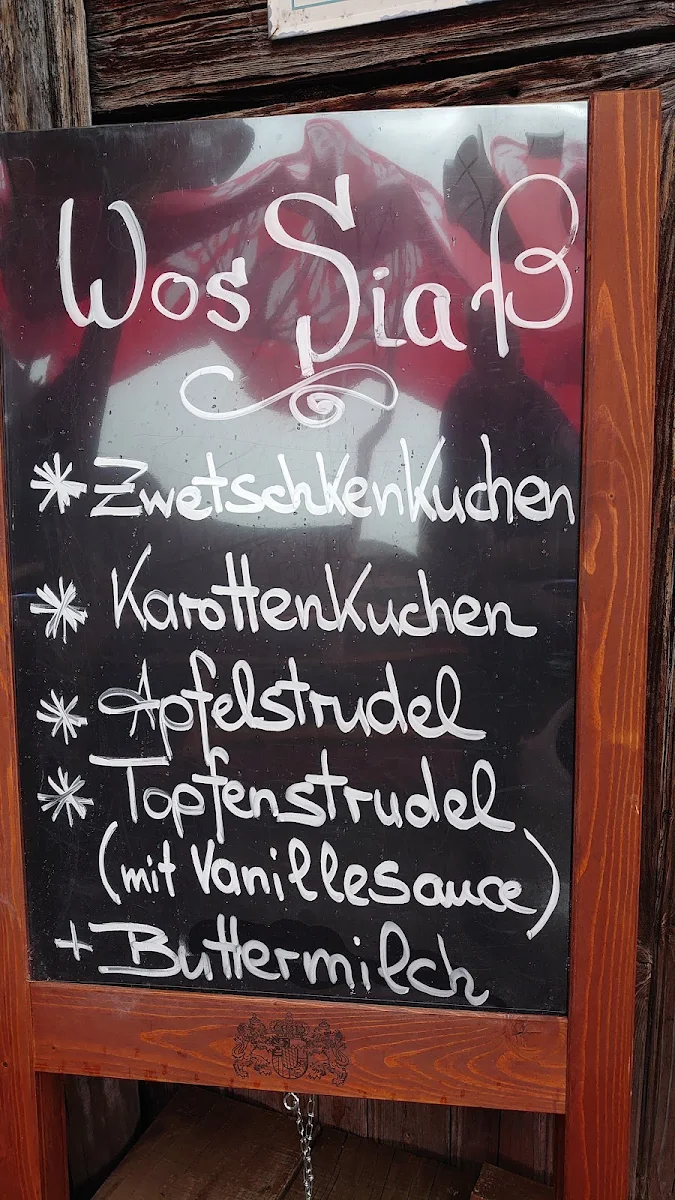 Wos Siaß
* Zwetschkenkuchen
* Karottenkuchen
* Apfelstrudel
* Topfenstrudel
(mit Vanillesauce)
+ Buttermilch